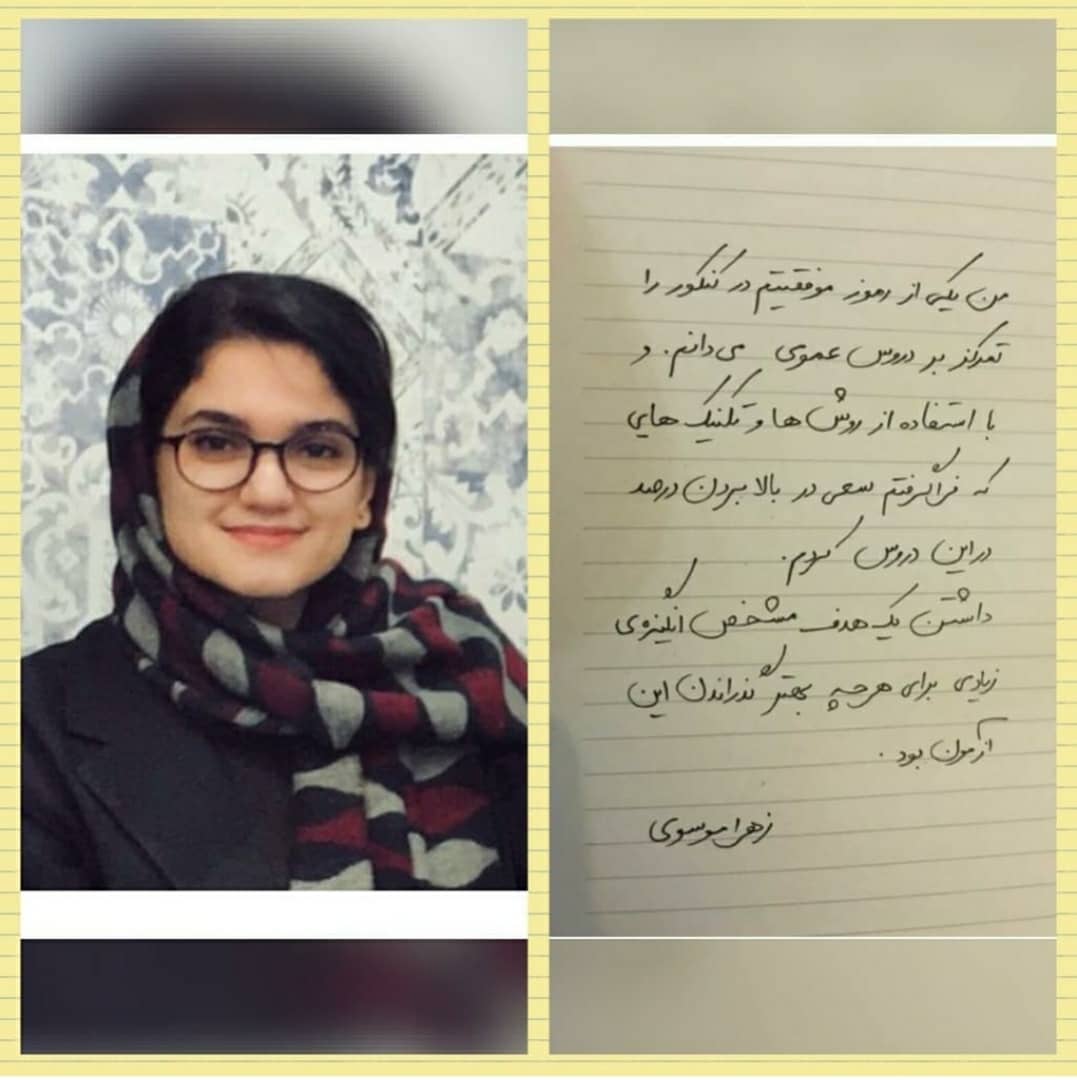 من یکی از رموز موفقیتم در کنکور را
تمرکز بر دروس عمومی می‌دانم. و
با استفاده از روش ها و تکنیک هایی
که فراگرفتم سعی در بالا بردن درصد
در این دروس کردم.
داشتن یک هدف مشخص انگیزه‌ی
زیادی برای هر چه بهتر گذراندن این
آزمون بود.
زهرا موسوی